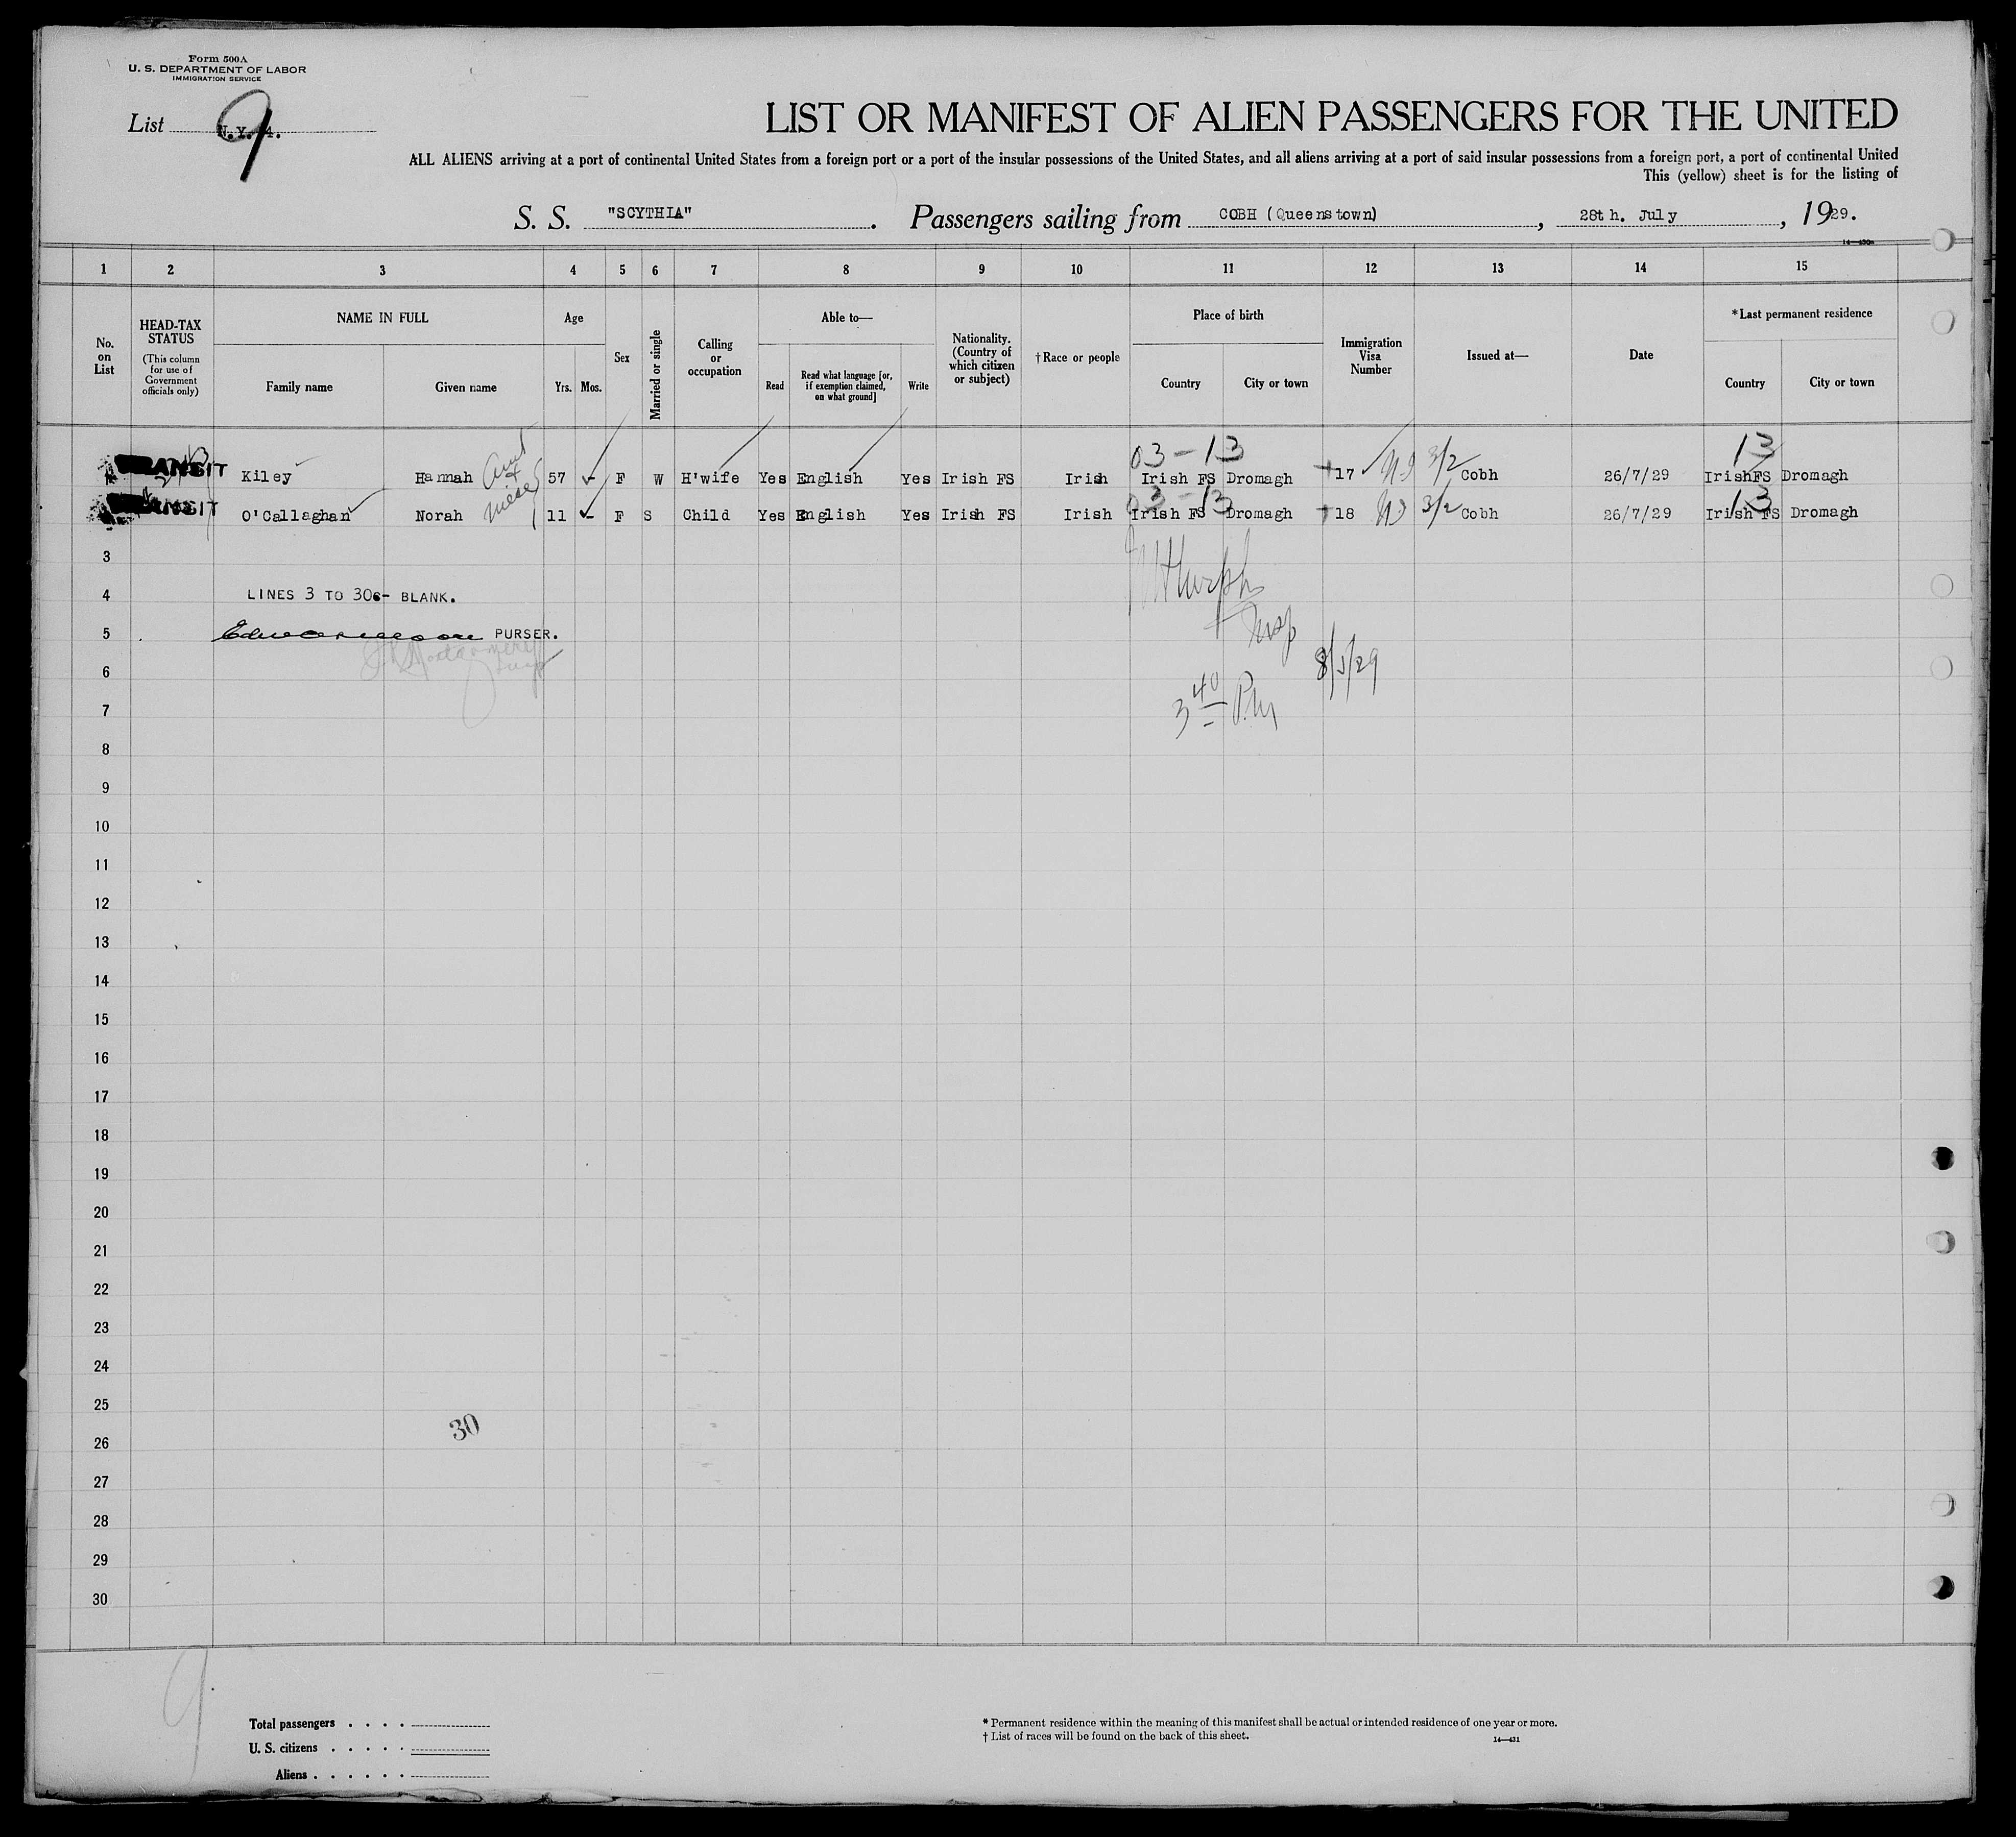 Form 500A
U. S. DEPARTMENT OF LABOR
IMMIGRATION SERVICE
List N.Y. 4.
9
LIST OR MANIFEST OF ALIEN PASSENGERS FOR THE UNITED
ALL ALIENS arriving at a port of continental United States from a foreign port or a port of the insular possessions of the United States, and all aliens arriving at a port of said insular possessions from a foreign port, a port of continental United
This (yellow) sheet is for the listing of
S. S. "SCYTHIA". Passengers sailing from COBH (Queenstown), 28th. July, 1929.
14—430a
1 2 3 4 5 6 7 8 9 10 11 12 13 14 15
No. on List
HEAD-TAX STATUS
(This column for use of Government officials only)
NAME IN FULL
Family name Given name
Age
Yrs. Mos.
Sex
Married or single
Calling or occupation
Able to—
Read
Read what language [or, if exemption claimed, on what ground]
Write
Nationality. (Country of which citizen or subject)
†Race or people
Place of birth
Country City or town
Immigration Visa Number
Issued at—
Date
*Last permanent residence
Country City or town
03-13 13
TRANSIT Kiley Hannah Aunt + 57 - F W H'wife Yes English Yes Irish FS Irish Irish FS Dromagh 17 3/2 Cobh 26/7/29 IrishFS Dromagh
03-13 13
TRANSIT O'Callaghan Norah niece 11 - F S Child Yes English Yes Irish FS Irish Irish FS Dromagh 18 3/2 Cobh 26/7/29 Irish FS Dromagh
3
4 LINES 3 TO 30 - BLANK.
5 PURSER.
Insp
6 8/5/29
7 3 40 P.M
8
9
10
11
12
13
14
15
16
17
18
19
20
21
22
23
24
25
30
26
27
28
29
30
9
Total passengers . . . .
U. S. citizens . . . . .
Aliens . . . . . .
* Permanent residence within the meaning of this manifest shall be actual or intended residence of one year or more.
† List of races will be found on the back of this sheet.
14—431